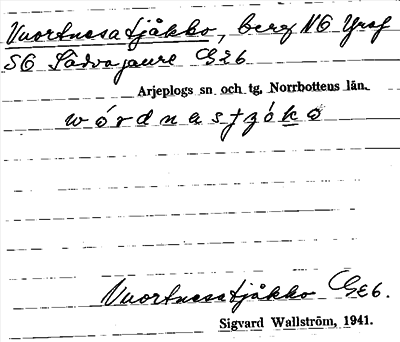 Vuortnasatjåkko, berg NO Yraf
SO Sädvajaure GEb
Arjeplogs sn och tg, Norrbottens län.
wórdnastʒókо
Vuortnasatjåkko GEb.
Sigvard Wallström, 1941.